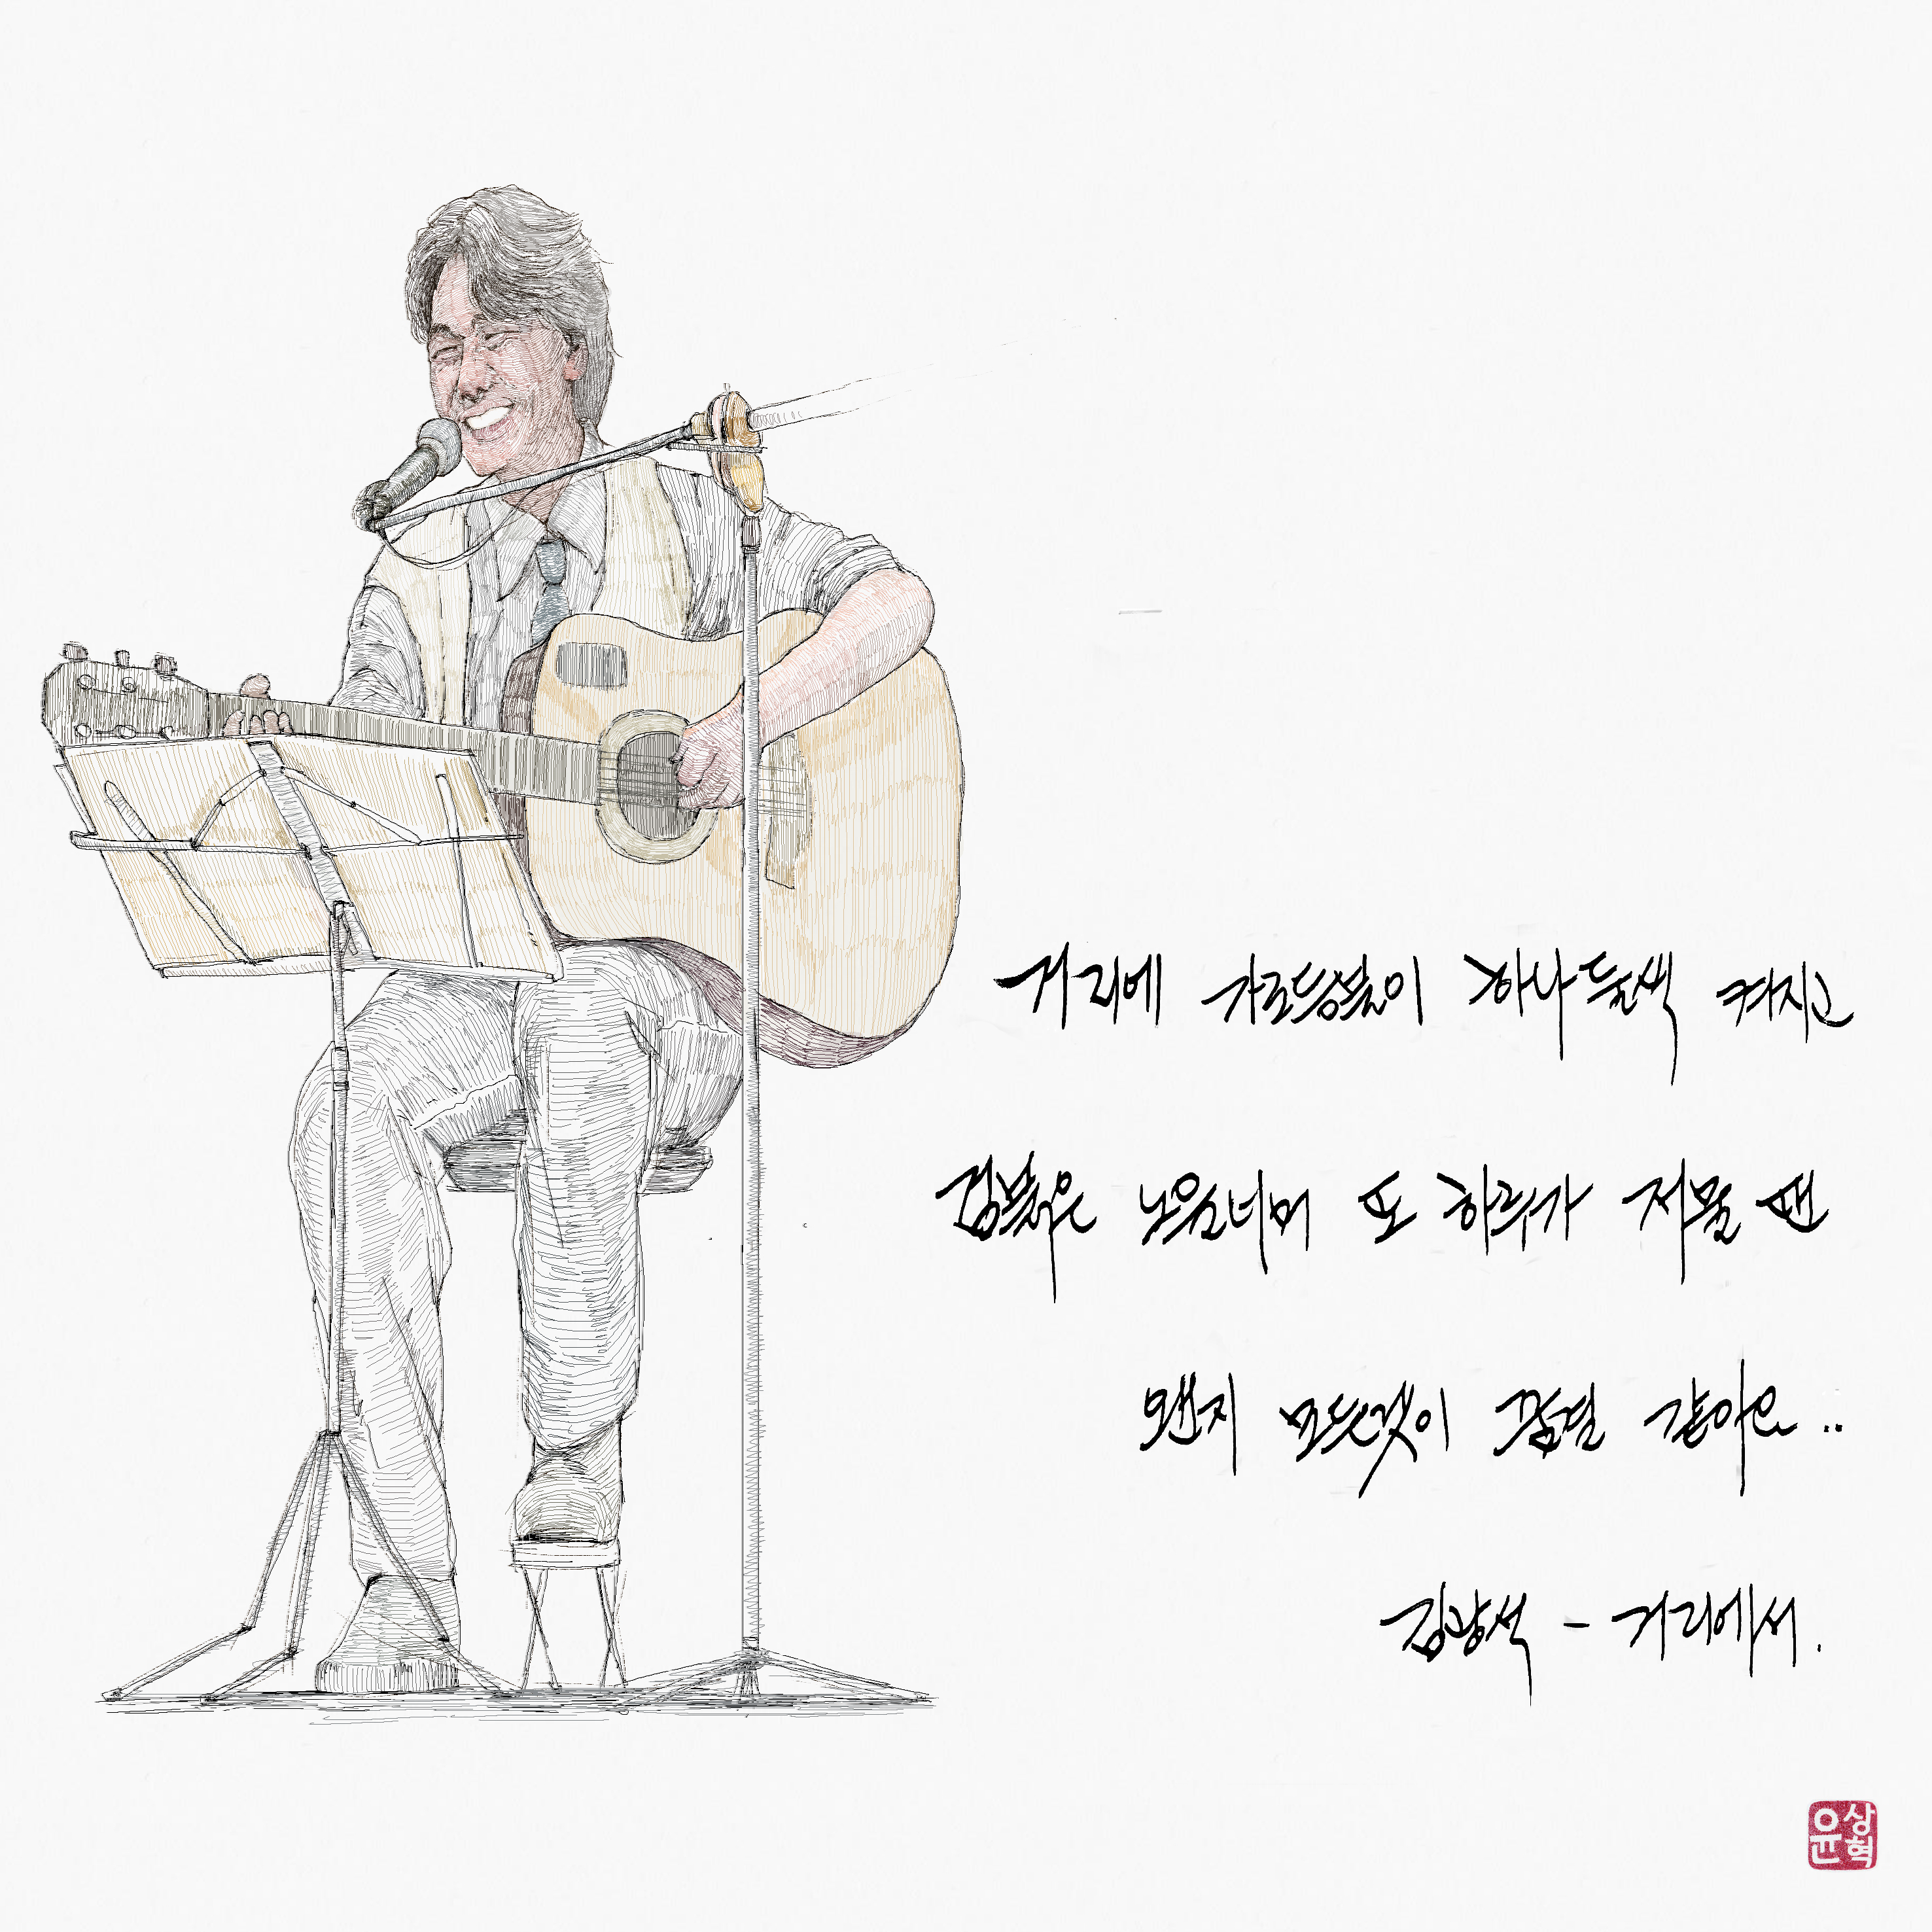 거리에 가로등불이 하나 둘씩 켜지고
검붉은 노을너머 또 하루가 저물 땐
왠지 모든것이 꿈결 같아요..
김광석 - 거리에서.
윤상혁